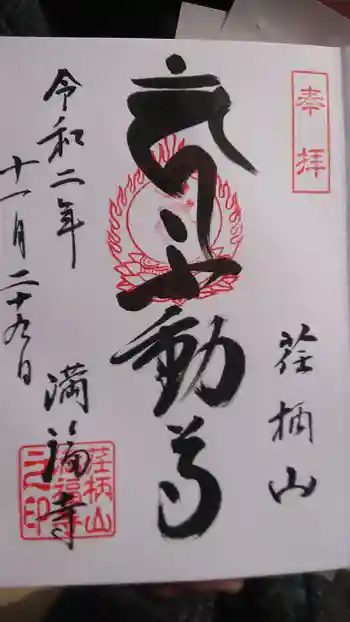 奉拝
荏柄山
不動尊
満福寺
令和二年
十一月二十九日
荏柄山
満福寺
之印